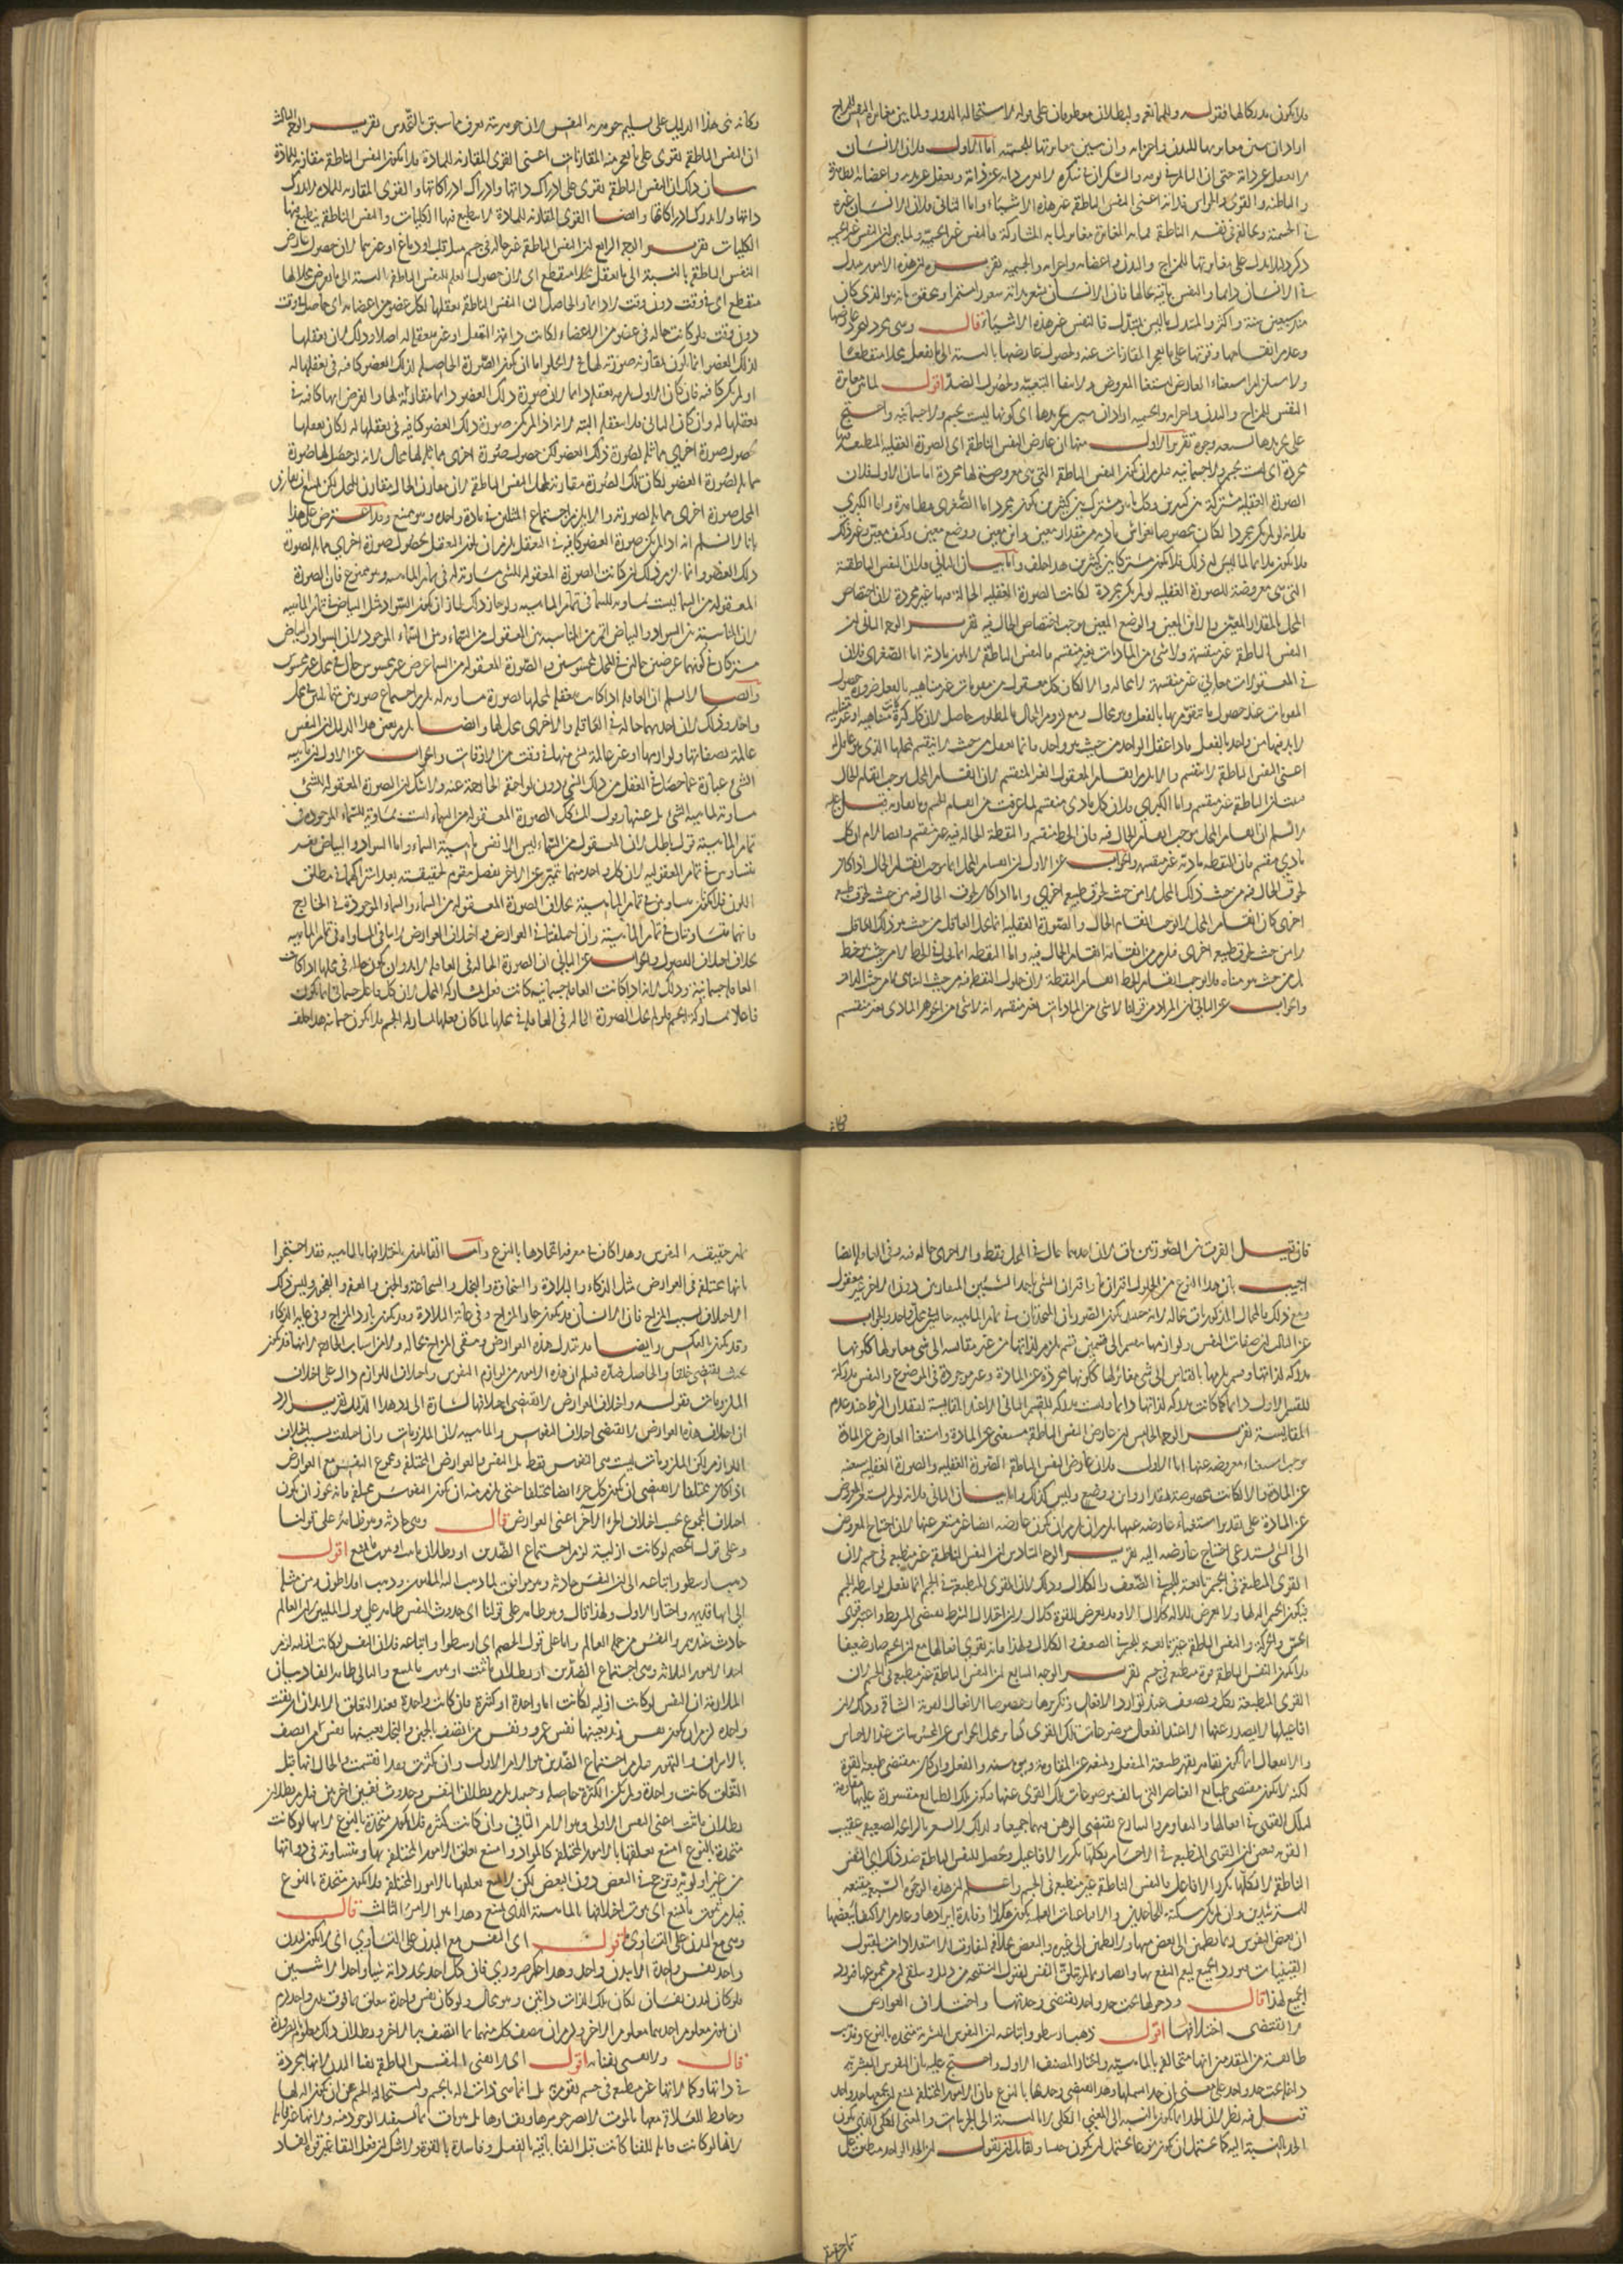 فلا يكون مدركا لها فقوله والممانعة والبطلان معطوفان على قوله لاستحالة الدور ولما بين مغايرة النفس للمزاج
اراد ان يبين مغايرتها للبدن واجزائه وان يبين مغايرتها للجسمية اما الاول فلان الانسان
لا يغفل عن ذاته حتى ان النائم في نومه والسكران في سكره لا يعزب ذاته عن ذاته ويغفل عن بدنه واعضائه الظاهرة
والباطنة والقوى والحواس فذاته اعنى النفس الناطقة غير هذه الاشياء واما الثانى فلان الانسان يشارك غيره
في الجسمية ويخالفه في نفسه الناطقة فما به المغايرة مغاير لما به المشاركة فالنفس غير الجسمية ولما بين ان النفس غير الجسمية
ذكر دليلا يدل على مغايرتها للمزاج والبدن واعضائه واجزائه والجسمية تقريره ان هذه الامور تتبدل
في الانسان دائما والنفس باقية بحالها فان الانسان يشعر بذاته شعورا مستمرا ويتحقق بانه هو الذي كان
منذ سبعين سنة واكثر والمتبدل ما ليس بمتبدل فالنفس غير هذه الاشياء قال وهى جوهر مجرد لتجرد عارضها
وعدم انقسامها وقوتها على ما يعجز المقارنات عنه ولحصول عارضها بالنسبة الى ما يعقل محلا منقطعا
ولاستلزام استغناء العارض استغناء المعروض ولانتفاء التبعية ولحصول الضد اقول لما بين مغايرة
النفس للمزاج والبدن واجزائه والجسمية اراد ان يبين تجريدها اى كونها ليست بجسم ولا جسمانية واحتج
على تجريدها بسبعة وجوه تقرير الاول منها ان عارض النفس الناطقة اى الصورة العقلية المنطبعة فيها
مجردة اى ليست بجسم ولا جسمانية فلزم ان يكون النفس الناطقة التى هى معروضة لها مجردة اما بيان الاول فلان
الصورة العقلية مشتركة بين كثيرين وكل ما هو مشترك بين كثيرين يكون مجردا اما الصغرى فظاهرة واما الكبرى
فلانه لو لم يكن مجردا لكان مخصوصا بعوارض مادية من مقدار معين واين معين ووضع معين وكيف معين وغير ذلك
فلا يكون ملائما لما ليس له ذلك فلا يكون مشتركا بين كثيرين هذا خلف واما بيان الثانى فلان النفس الناطقة
التى هى معروضة للصورة العقلية لو لم يكن مجردة لكانت الصورة العقلية الحالة فيها غير مجردة لان اختصاص
المحل بالمقدار المعين والاين المعين والوضع المعين يوجب اختصاص الحال فيه تقرير الوجه الثانى ان
النفس الناطقة غير منقسمة ولا شئ من الماديات بغير منقسم فالنفس الناطقة لا يكون مادية اما الصغرى فلان
في المعقولات معانى غير منقسمة لا محالة والا لكان كل معقول من مقومات غير متناهية بالفعل ضرورة حصول
المقومات عند حصول ما يتقوم بها بالفعل وهو محال ومع لزوم المحال فالمطلوب حاصل لان كل كثرة متناهية او غير متناهية
لا بد فيها من واحد بالفعل فاذا عقل الواحد من حيث هو واحد فانما يعقل من حيث لا ينقسم فمحلها الذي هو العاقل
اعنى النفس الناطقة لا ينقسم والا لزم انقسام المعقول الغير المنقسم لان انقسام المحل يوجب انقسام الحال
فالنفس الناطقة غير منقسم واما الكبرى فلان كل مادى منقسم لما عرفت من انقسام الجسم وما يقارنه قيل عليه
لا نسلم ان انقسام المحل يوجب انقسام الحال فيه فان الخط منقسم والنقطة الحالة فيه غير منقسم وايضا لا نسلم ان كل
مادى منقسم فان النقطة مادية غير منقسمة والجواب عن الاول ان انقسام المحل انما يوجب انقسام الحال اذا كان
لحوق الحال فيه من حيث ذلك المحل لا من حيث لحوق طبيعة اخرى واما اذا كان لحوق الحال فيه من حيث لحوق طبيعة
اخرى كان انقسام المحل لا يوجب انقسام الحال والصورة العقلية انما تحل العاقل من حيث هو ذلك العاقل
لا من حيث لحوق طبيعة اخرى فلزم من انقسامه انقسام الحال فيه واما النقطة انما تحل في الخط لا من حيث هو خط
بل من حيث هو متناه فلا يوجب انقسام الخط انقسام النقطة لان حلول النقطة فيه من حيث التناهى لا من حيث المقدار
والجواب عن الثانى ان المراد من قولنا لا شئ من الماديات بغير منقسم انه لا شئ من الجوهر المادى بغير منقسم
وكانه بنى هذا الدليل على تسليم جوهرية النفس لان جوهريته يعرف مما سبق بالحدس تقرير الوجه الثالث
ان النفس الناطقة تقوى على ما يعجز منه المقارنات اعنى القوى المقارنة للمادة فلا يكون النفس الناطقة مقارنة للمادة
بيان ذلك ان النفس الناطقة تقوى على ادراك ذاتها وادراك ادراكاتها والقوى المقارنة للمادة لا تدرك
ذاتها ولا تدرك ادراكاتها وايضا القوى المقارنة للمادة لا ينطبع فيها الكليات والنفس الناطقة ينطبع فيها
الكليات تقرير الوجه الرابع ان النفس الناطقة غير حالة في جسم مثل قلب او دماغ او غيرهما لان حصول عارض
النفس الناطقة بالنسبة الى ما يعقل محلا منقطع اى لان حصول العلم للنفس الناطقة بالنسبة الى ما يعرض محلا لها
منقطع اى في وقت دون وقت لا دائما والحاصل ان النفس الناطقة تعقلها لكل عضو من اعضائه اى حاصل في وقت
دون وقت فلو كانت حالة في عضو من الاعضاء لكانت دائمة التعقل او غير متعقلة له اصلا وذلك لان تعقلها
لذلك العضو انما يكون لمقارنة صورته لها فلا يخلو اما ان يكون الصورة الحاصلة لذلك العضو كافية في تعقلها له
او لم يكن كافية فان كان الاول يلزم تعقله دائما لان صورة ذلك العضو دائما مقارنة لها والفرض انها كافية في
تعقلها له وان كان الثانى فلا يتعقله البتة لانه اذا لم يكن صورة ذلك العضو كافية في تعقلها له لكان تعقلها
بحصول صورة اخرى مماثلة لصورة ذلك العضو لكن حصول صورة اخرى مماثلة لها محال لانه لو حصل لها صورة
مماثلة لصورة العضو لكان تلك الصورة مقارنة لمحل النفس الناطقة لان مقارن الحال مقارن للمحل لكن امتنع ان يقارن
المحل صورة اخرى مماثلة لصورته والا يلزم اجتماع المثلين في مادة واحدة وهو ممتنع وقد اعترض على هذا
بانا لا نسلم انه اذا لم يكن صورة العضو كافية في التعقل يلزم ان يكون التعقل بحصول صورة اخرى مماثلة لصورة
ذلك العضو وانما يلزم ذلك ان لو كانت الصورة المعقولة للشئ مساوية له في تمام الماهية وهو ممنوع فان الصورة
المعقولة من السماء ليست مساوية للسماء في تمام الماهية ولو جاز ذلك لجاز ان يكون السواد مثل البياض في تمام الماهية
لان المناسبة بين السواد والبياض اتم من المناسبة بين المعقول من السماء وبين السماء الموجود لان السواد والبياض
مشتركان في كونهما عرضين حالين في المحل محسوسين والصورة المعقولة من السماء عرض غير محسوس حال في محل غير محسوس
وايضا لا نسلم ان العاقلة اذا كانت تتعقل لمحلها بصورة مساوية له يلزم اجتماع صورتين متماثلتين في محل
واحد وذلك لان احديهما حالة في العاقلة والاخرى محل لها وايضا يلزم بعين هذا الدليل ان النفس
عالمة بصفاتها ولوازمها او غير عالمة بشئ منها في وقت من الاوقات والجواب عن الاول ان ماهية
الشئ عبارة عما حصل في العقل من ذلك الشئ دون لواحقه الخارجة عنه ولا شك ان الصورة المعقولة للشئ
مساوية لماهية الشئ بل عينها وقول المشكك الصورة المعقولة من السماء ليست بمساوية للسماء الموجودة في
تمام الماهية قول باطل لان المعقول من السماء ليس الا نفس ماهية السماء واما السواد والبياض فغير
متساويين في تمام المعقولية لان كل واحد منهما تميز عن الاخر بفصل مقوم لحقيقته بعد اشتراكهما في مطلق
اللون فلا يكونان متساويين في تمام الماهية بخلاف الصورة المعقولة من السماء والسماء الموجودة في الخارج
فانهما متساويتان في تمام الماهية وان اختلفتا في العوارض واختلاف العوارض لا ينافى المساواة في تمام الماهية
بخلاف اختلاف الفصول والجواب عن الثانى ان الصورة الحالة في العاقلة لا بد وان يكون حالة في محلها اذا كانت
العاقلة جسمانية وذلك لانه اذا كانت العاقلة جسمانية كانت تفعل بمشاركة المحل لان كل فاعل جسمانى انما يكون
فاعلا بمشاركة الجسم فلو لم تحل الصورة الحالة في العاقلة في محلها لما كان فعلها بمشاركة الجسم فلا يكون جسمانية هذا خلف
فكانه
فان قيل الفرق بين الصورتين باق لان احديهما حال في المحل فقط والاخرى حالة فيه وفي العاقلة ايضا
اجيب بان هذا النوع من الحلول اقتران ما واقتران الشئ باحد الشيئين المقارنين دون الاخر غير معقول
ومع ذلك فالمحال المذكور باق بحاله لانه حينئذ يكون الصورتان المتحدتان في تمام الماهية حاليتين في محل واحد والجواب
عن الثالث ان صفات النفس ولوازمها ينقسم الى قسمين قسم يلزم لذاتها من غير مقايسة الى شئ مغاير لها ككونها
مدركة لذاتها وقسم يلزمها بالقياس الى شئ مغاير لها ككونها مجردة عن المادة وغير موجودة في الموضوع والنفس مدركة
للقسم الاول دائما كما كانت مدركة لذاتها دائما وليست مدركة للقسم الثانى الا عند المقايسة لفقدان الشرط عند عدم
المقايسة تقرير الوجه الخامس ان عارض النفس الناطقة مستغنى عن المادة واستغناء العارض عن المادة
يوجب استغناء معروضه عنها اما الاول فلان عارض النفس الناطقة الصورة العقلية والصورة العقلية مستغنية
عن المادة والا لكانت مخصوصة بمقدار واين ووضع وليس كذلك واما بيان الثانى فلانه لو لم يستغن المعروض
عن المادة على تقدير استغناء عارضه عنها يلزم ان يكون عارضه ايضا غير مستغن عنها لان احتياج المعروض
الى الشئ يستدعى احتياج عارضه اليه تقرير الوجه السادس ان النفس الناطقة غير منطبعة في جسم لان
القوى المنطبعة في الجسم تابعة للجسم في الضعف والكلال وذلك لان القوى المنطبعة في الجسم انما تفعل بواسطة الجسم
فيكون الجسم آلة لها ولا يعرض للآلة كلال الا وقد يعرض للقوة كلال لان اختلال الشرط يقتضى اختلال المشروط واعتبر قوى
الحس والحركة والنفس الناطقة غير تابعة للجسم في الضعف والكلال ولهذا فانه تقوى افعالها مع ان الجسم صار ضعيفا
فلا يكون النفس الناطقة قوة منطبعة في جسم تقرير الوجه السابع ان النفس الناطقة غير منطبعة في الجسم لان
القوى المنطبعة تكل وتضعف عند توارد الافعال وتكررها وخصوصا الافعال القوية الشاقة وذلك لان
افاعيلها لا يصدر عنها الا عند انفعال موضوعات تلك القوى كما ان محل الحواس عن المحسوسات عند الاحساس
والانفعال انما يكون بقاهر يقهر طبيعة المنفعل ويمنعه عن المقاومة فيوهنه والفعل وان كان مقتضى طبيعة القوة
لكنه لا يكون مقتضى طبايع العناصر التى يتالف موضوعات تلك القوى عنها وتكون تلك الطبايع مقسورة عليها مقاومة
لتلك القوى في افعالها والتقاوم والتنازع يقتضى الوهن فيهما جميعا ولذلك لا يشعر بالرائحة الضعيفة عقيب
القوية فتعين ان القوى المنطبعة في الاجسام يكلها تكرر الافاعيل ويحصل للنفس الناطقة ضد ذلك اى النفس
الناطقة لا يكلها تكرر الافاعيل فالنفس الناطقة غير منطبعة في الجسم واعلم ان هذه الوجوه السبعة مقنعة
للمسترشدين وان لم يكن مسكتة للجاحدين والاقناعيات العلمية يكون هكذا وفائدة ايرادها وعدم الاكتفاء ببعضها
ان بعض النفوس ربما يطمئن الى بعض منها ولا يطمئن الى غيره والبعض بخلافه لتفاوت الاستعدادات لقبول
اليقينيات فيورد الجميع ليعم النفع بها
الجميع لهذا قال ودخولها تحت حد واحد يقتضى وحدتها واختلاف العوارض
لا يقتضى اختلافها اقول ذهب ارسطو واتباعه ان النفوس البشرية متحدة بالنوع وذهب
طائفة من المتقدمين انها متخالفة بالماهية واختار المصنف الاول واحتج عليه بان النفوس البشرية
داخلة تحت حد واحد على معنى ان حدا يشملها وهذا يقتضى وحدتها بالنوع فان الامور المختلفة يمتنع ان يجمعها حد واحد
قيل فيه نظر لان الحد انما يكون بالنسبة الى المعنى الكلى لا بالنسبة الى الجزئيات والمعنى الكلى الذي يكون
الحد بالنسبة اليه كما يحتمل ان يكون نوعا يحتمل ان يكون جنسا ولقائل ان يقول ان الحد الواحد منطبق على
تمام حقيقة
تمام حقيقة النفوس وهذا كاف في معرفة اتحادها بالنوع واما القائلون باختلافها بالماهية فقد احتجوا
بانها مختلفة في العوارض مثل الذكاء والبلادة والسخاوة والبخل والشجاعة والجبن والعفة والفجور وليس ذلك
الاختلاف بسبب المزاج فان الانسان قد يكون حار المزاج وفي غاية البلادة وقد يكون بارد المزاج وفي غاية الذكاء
وقد يكون بالعكس وايضا قد تتبدل هذه العوارض ويبقى المزاج بحاله ولا من اسباب الخارجة لانها قد تكون
بحيث يقتضى خلقا والحاصل ضده فعلم ان هذه الامور من لوازم النفوس واختلاف اللوازم دال على اختلاف
الملزومات فقوله واختلاف العوارض لا يقتضى اختلافها اشارة الى رد هذا الدليل تقرير الرد
ان اختلاف هذه العوارض لا يقتضى اختلاف النفوس بالماهية لان الملزومات وان اختلفت بسبب اختلاف
اللوازم لكن الملزومات ليست هى النفوس فقط بل النفس والعوارض المختلفة ومجموع النفس مع العوارض
اذا كان مختلفا لا يقتضى ان يكون كل جزء ايضا مختلفا حتى يلزم منه ان يكون النفوس مختلفة فانه يجوز ان يكون
اختلاف المجموع بحسب اختلاف الجزء الاخر اعنى العوارض قال وهى حادثة وهو ظاهر على قولنا
وعلى قول الخصم لو كانت ازلية لزم اجتماع الضدين او بطلان ما ثبت او ثبوت ما يمتنع اقول
ذهب ارسطو واتباعه الى ان النفس حادثة وهو موافق لما ذهب اليه المليون وذهب افلاطون ومن قبله
الى انها قديمة واختار الاول ولهذا قال وهو ظاهر على قولنا اى حدوث النفس ظاهر على قول المليين لان العالم
حادث عندهم والنفس من جملة العالم واما على قول الخصم اى ارسطو واتباعه فلان النفس لو كانت ازلية لزم
احد الامور الثلاثة وهى اجتماع الضدين او بطلان ما ثبت او ثبوت ما يمتنع والتالى ظاهر الفساد بيان
الملازمة ان النفس لو كانت ازلية لكانت اما واحدة او كثيرة فان كانت واحدة فعند التعلق بالابدان ان بقيت
واحدة لزم ان يكون نفس زيد بعينها نفس عمرو ونفس من اتصف بالجبن والبخل بعينها نفس من اتصف
بالسخاوة والتهور فلزم اجتماع الضدين هو الامر الاول وان تكثرت بعد ان انقسمت والحال انها قبل
التعلق كانت واحدة ولم يكن الكثرة حاصلة وحينئذ يلزم بطلان النفس وحدوث نفسين اخرتين فلزم بطلان
بطلان ما ثبت اعنى النفس الاولى وهو الامر الثانى وان كانت كثيرة فلا يكون متحدة بالنوع لانها لو كانت
متحدة بالنوع امتنع تعلقها بالامور المختلفة كالمواد وامتنع تعلق الامور المختلفة بها وتساوية في ذواتها
من غير اولوية وترجيح في البعض دون البعض لكن لا يمتنع تعلقها بالامور المختلفة فلا يكون متحدة بالنوع
فيلزم ثبوت ما يمتنع اى ثبوت اختلافها بالماهية الذي يمتنع وهذا هو الامر الثالث قال
وهى مع البدن على التساوى اقول اى النفس مع البدن على التساوى اى لا يكون لبدن
واحد نفس واحدة الا بدن واحد وهذا حكم ضرورى فان كل احد يجد ذاته شيئا واحدا لا شيئين
فلو كان لبدن نفسان لكان تلك الذات ذاتين وهو محال ولو كان نفس واحدة متعلقة بما فوق بدن واحد لزم
ان يكون معلوم احدهما معلوم الاخر ولزم ان يتصف كل منهما بما اتصف به الاخر وبطلان ذلك معلوم بالضرورة
قال ولا تفنى بفنائه اقول اى لا تفنى النفس الناطقة بفناء البدن لانها مجردة
في ذاتها وكمالاتها غير منطبعة في جسم تقوم به بل انما هى ذات آلة بالجسم واستحالة الجسم عن ان يكون آلة لها
وحافظا للعلاقة معها بالموت لا يضر جوهرها وبقاؤها بل هو باق بما يستفيد الوجود منه ولانها غير قابلة
لانها لو كانت قابلة للفناء كانت قبل الفناء باقية بالفعل وفاسدة بالقوة ولا شك ان فعل البقاء غير قوة الفساد